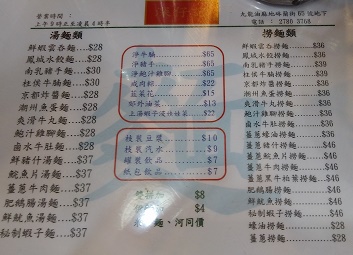 營業時間：
上午9時正至凌晨4時半
九龍油麻地砵蘭街65號地下
電話：2780 3768
湯麵類
鮮蝦雲吞麵...$28
鳳城水餃麵...$28
南乳豬手麵...$30
柱侯牛腩麵...$30
京都炸醬麵...$28
潮州魚蛋麵...$28
爽滑牛丸麵...$28
鮑汁雞腳麵...$28
鹵水牛肚麵...$28
鮮豬什湯麵...$37
鯇魚片湯麵...$37
薑蔥牛肉麵...$37
肥鵝腸湯麵...$37
鮮魷魚湯麵...$37
秘制蝦子麵...$37
淨牛腩...$65
淨豬手...$65
淨鮑汁雞腳...$65
咸肉粽...$22
韮菜花...$15
郊外油菜...$13
$15
枝裝豆漿...$10
枝裝汽水...$9
罐裝飲品...$7
紙包飲品...$7
$8
$4
麵、河同價
撈麵類
鮮蝦雲吞撈麵...$36
鳳城水餃撈麵...$36
南乳豬手撈麵...$39
柱侯牛腩撈麵...$39
京都炸醬撈麵...$36
潮州魚蛋撈麵...$36
爽滑牛丸撈麵...$36
鮑汁雞腳撈麵...$36
鹵水牛肚撈麵...$36
薑蔥豬什撈麵...$46
薑蔥鯇魚片撈麵...$46
薑蔥牛肉撈麵...$46
薑蔥黑牛柏葉撈麵...$46
肥鵝腸撈麵...$46
鮮魷魚撈麵...$46
秘制蝦子撈麵...$46
蠔油撈麵...$28
薑蔥撈麵...$28